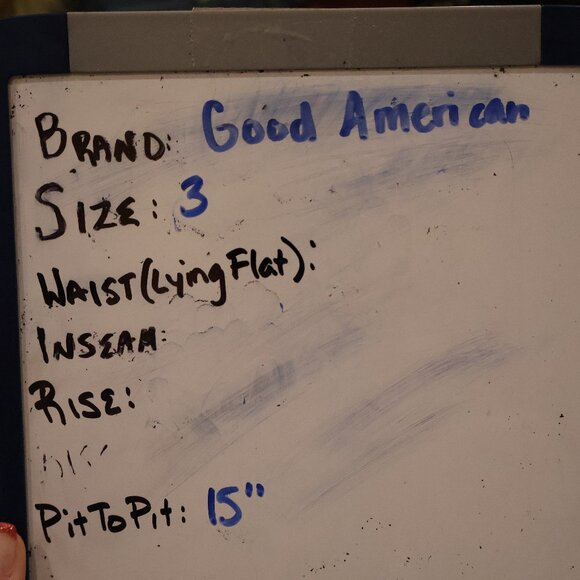 BRAND: Good American
SIZE: 3
WAIST(LyingFlat):
INSEAM:
RISE:
PitToPit: 15"